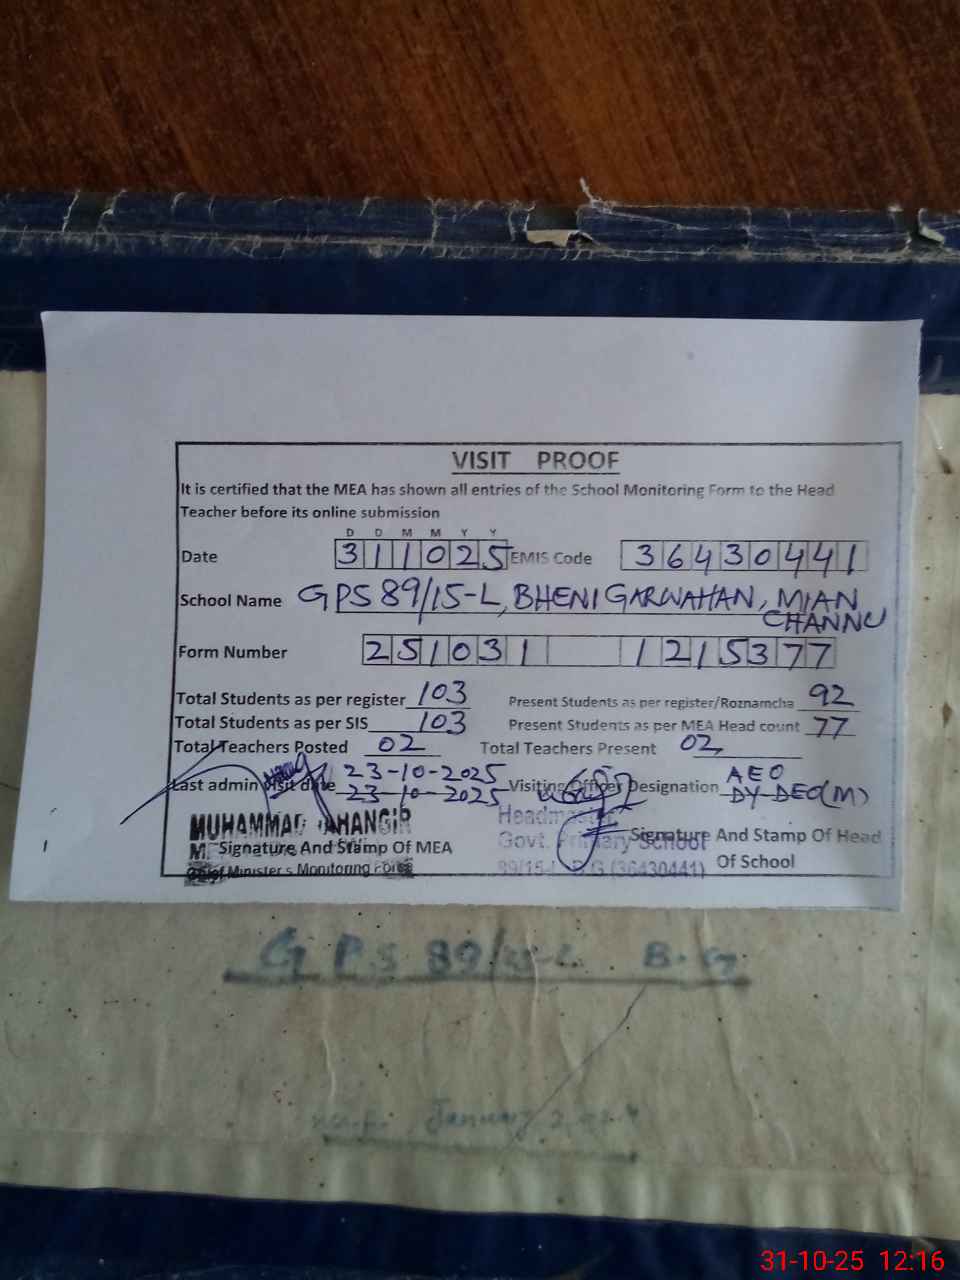 VISIT PROOF
It is certified that the MEA has shown all entries of the School Monitoring Form to the Head
Teacher before its online submission
D D M M Y Y
Date 311025 EMIS Code 36430441
School Name GPS 89/15-L, BHENI GARWAHAN, MIAN
CHANNU
Form Number 251031 1215377
Total Students as per register 103 Present Students as per register/Roznamcha 92
Total Students as per SIS 103 Present Students as per MEA Head count 77
Total Teachers Posted 02 Total Teachers Present 02
23-10-2025 AEO
Last admin visit date 23-10-2025 Visiting Officer Designation DY-DEO(M)
MUHAMMAD JAHANGIR Headmaster
Signature And Stamp Of MEA Govt. Primary School Signature And Stamp Of Head
Chief Minister's Monitoring Force 89/15-L B.G (36430441) Of School
GPS 89/15-L B.G
January
31-10-25 12:16